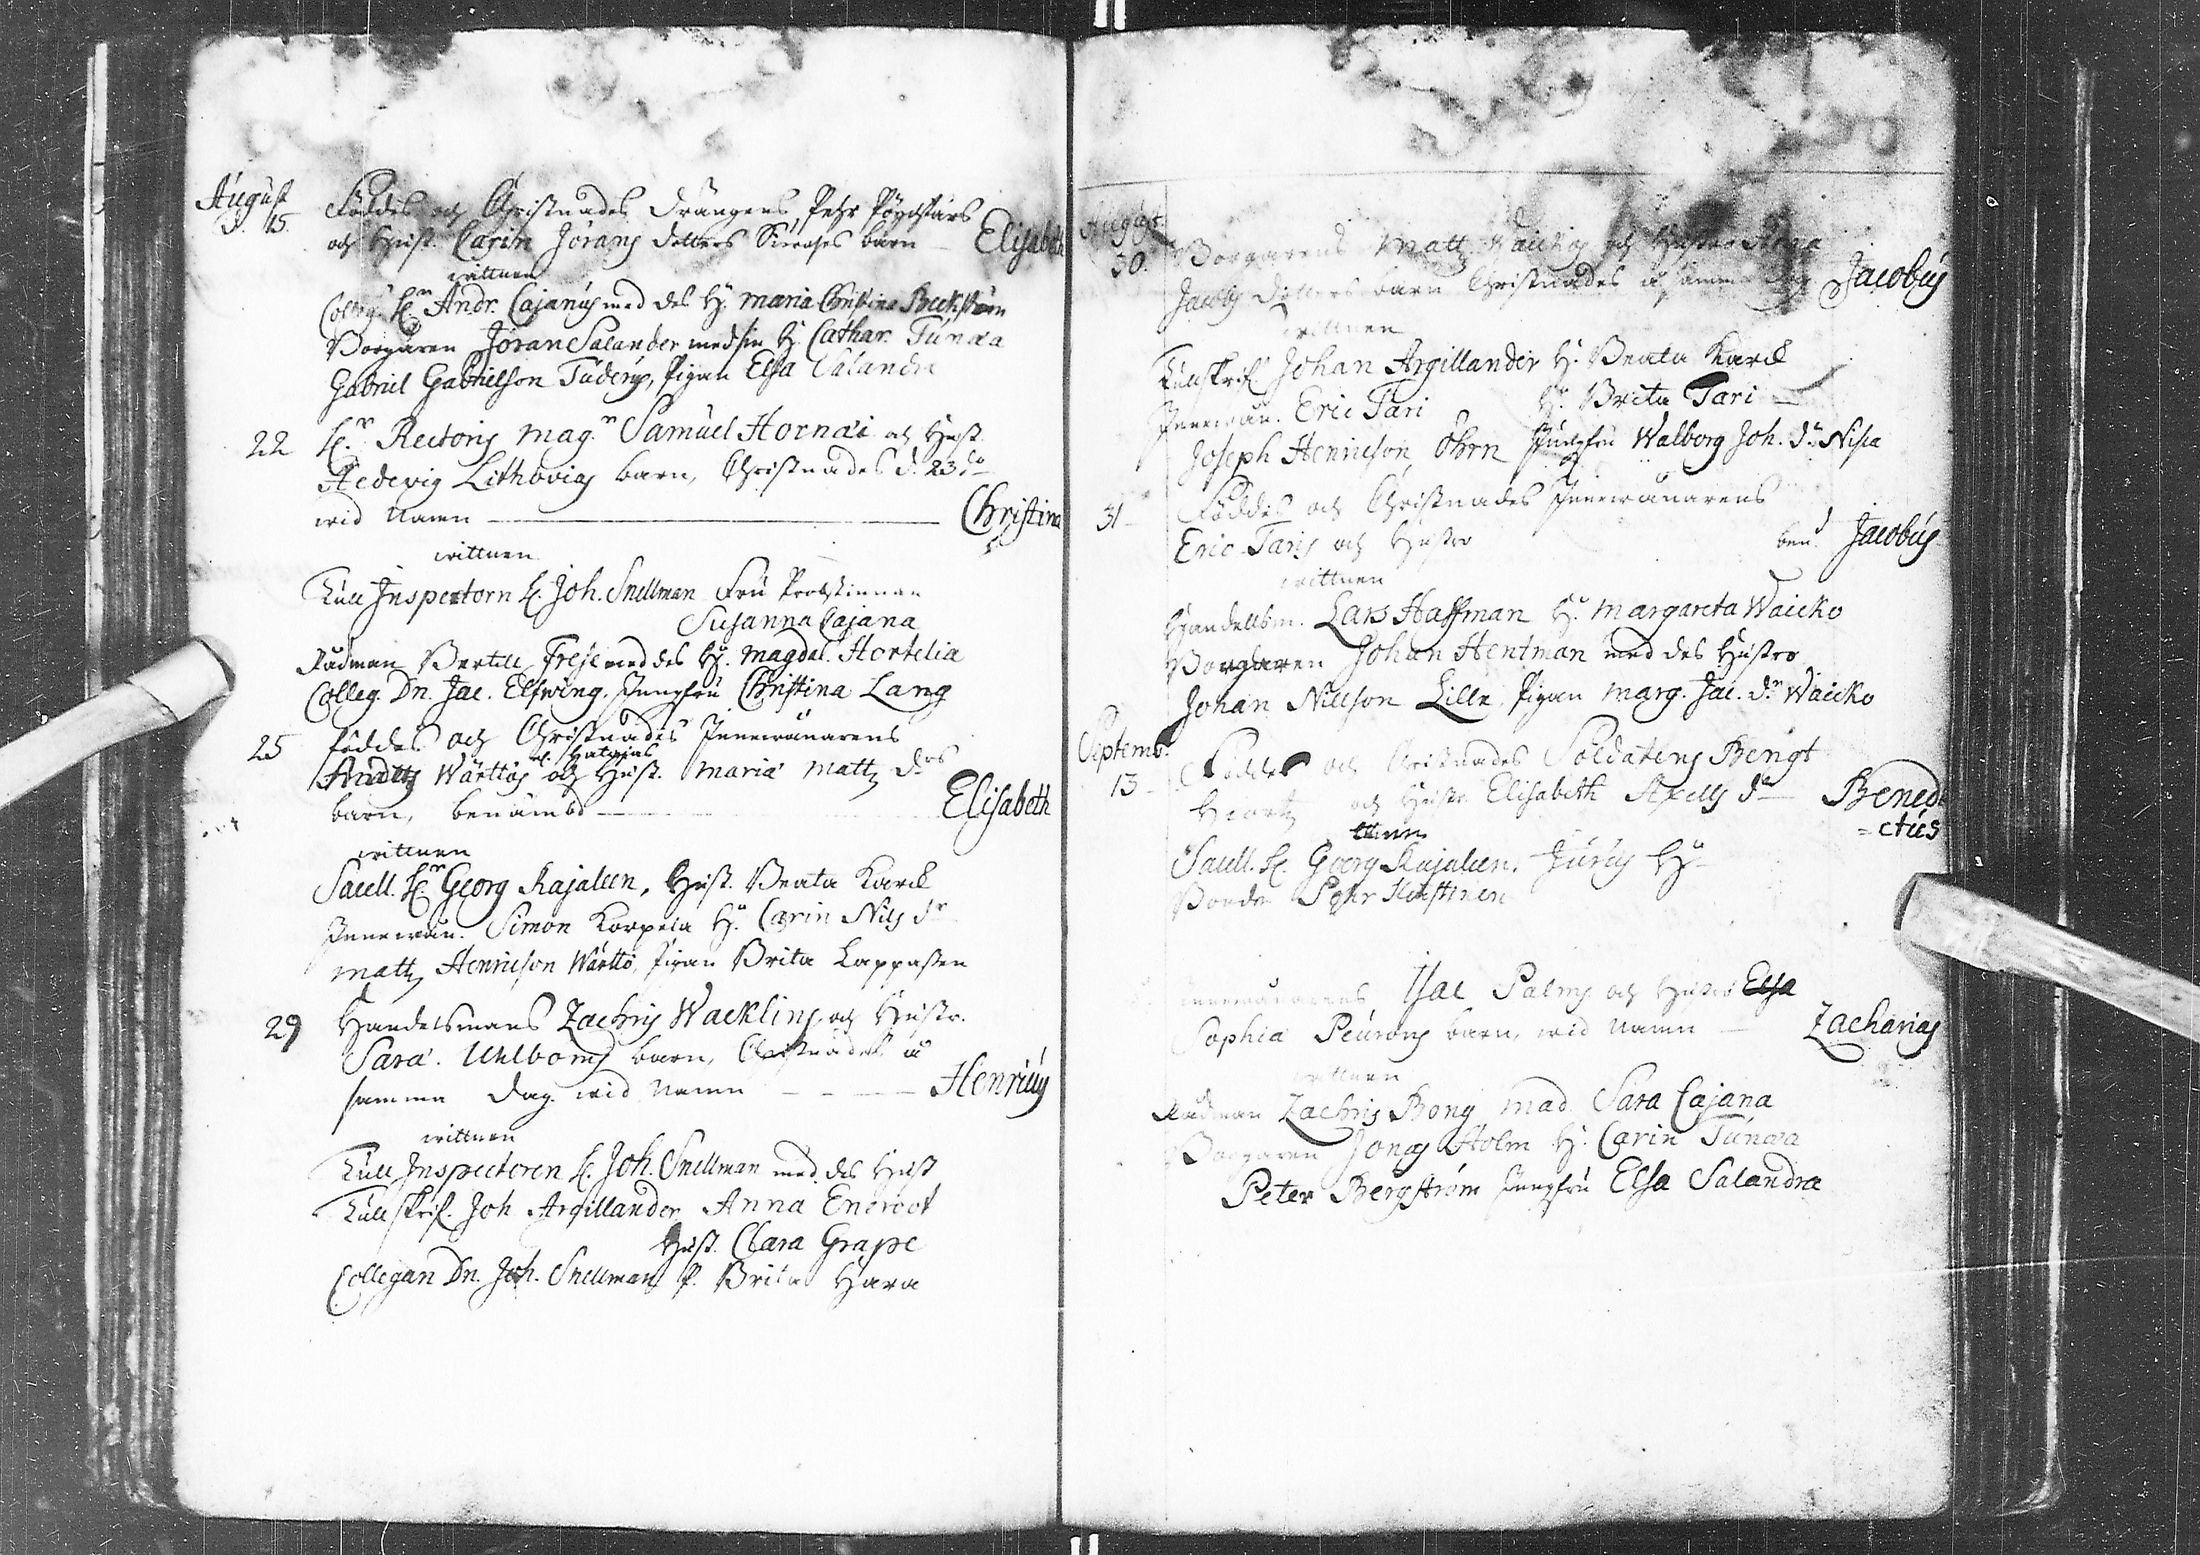 August
d. 15. Föddes och Christnades Drängens, Pehr
och Hust. Carin Jörans dotters barn — Elisabeth
wittnen
Colleg. Hr. Andr. Cajanus med des H. Maria Christina
Borgaren Jöran Salander med sin H. Cathar. Tunæa
Gabriel Gabrielson Tuderus, Pigan Elsa Salandra
22 Hr. Rectoris Mag.r Samuel Hornæi och Hust.
Hedevig Lithovias barn, Christnades d. 23 do
wid namn — Christina
wittnen
Tull Inspectorn H. Joh. Snellman Fru Probstinnan
Susanna Cajana
Rådman Bertill Freje med des H. Magdal. Hortelia
Colleg. Dn. Jac. Elfwing, Jungfru Christina Lang
25 föddes och Christnades Innewånarens
Wärttös och Hust. Maria Mattz drs
barn, benämbd — Elisabeth
wittnen
Sacell. Hr. Georg Kajaleen, Hust. Beata Karck
Innewån. Simon Korpela H. Carin Nils dr
Mattz Henricson Wärttö, Pigan Brita Lappalen
29 Handelsmans Zachris Wacklins och Hustr.
Sara Uhlboms barn, Christnades å
samma dag wid namn — Henricus
wittnen
Tull Inspectoren H. Joh. Snellman med des Hust
Tullskrif. Joh Argillander Anna Eneroot
Hust. Clara Grape
Collegan Dn. Joh. Snellman P. Brita Hara
August
30. Borgarens Matt. och Hustro Anna
Jacobs Dotters barn Christnades å samma dag Jacobus
wittnen
Tullskrif Johan Argillander H. Beata Karck
Innewån. Eric Tari H. Brita Tari
Joseph Henricson Öhrn Jungfru Walborg Joh. dr Nisia
31 Föddes och Christnades Innewånarens
Eric Taris och Hustro ben.d Jacobus
wittnen
Handelsm. Lars Haffman H. Margareta Waicko
Borgaren Johan Hentman med des Hustro
Johan Nillson Lille, Pigan Marg. Jac. dr Waicko
Septemb.
13 Föddes och Christnades Soldatens Bengt
Hiort och Hustr. Elisabeth Axells dr — Bened
=ctus
Sacell. H. Georg Kajaleen. H
Bonde Pehr
Innewånarens Isac Palms och Hustro Elsa
Sophia Peurons barn, wid namn — Zacharias
wittnen
Rådman Zachris Bong Mad. Sara Cajana
Borgaren Jonas Holm H. Carin Tunæa
Peter Bergström Jungfru Elsa Salandra